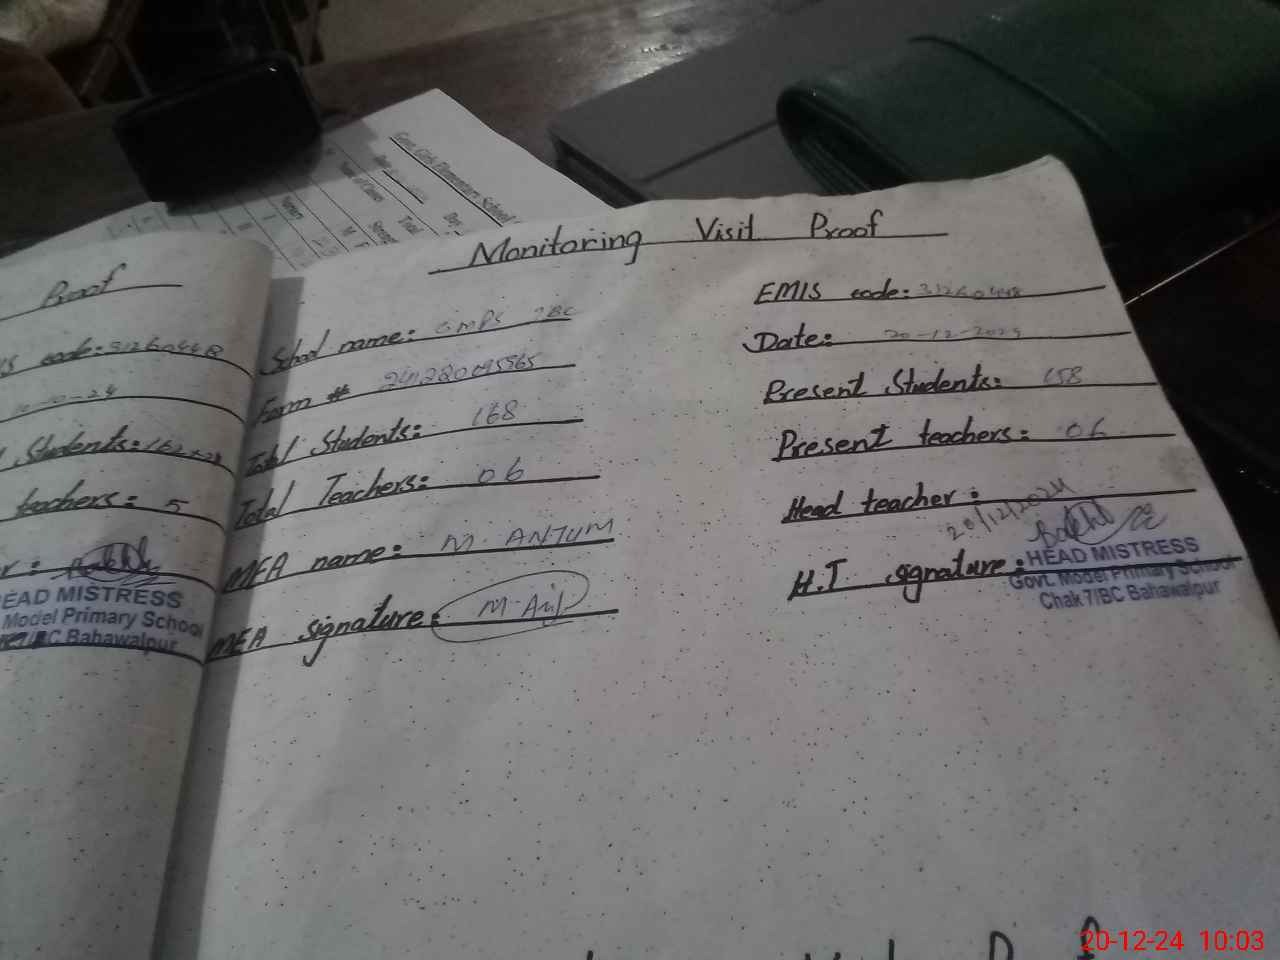 Govt. Girls Elementary School
Proof
code: 31260448
10-10-24
Students: 162
teachers: 5
HEAD MISTRESS
Model Primary School
7/BC Bahawalpur
Monitoring Visit Proof
School name: GMPS 7BC
EMIS code: 31260448
Form # 241280095565
Date: 20-12-2024
Total Students: 168
Present Students: 158
Total Teachers: 06
Present teachers: 06
MEA name: M. ANJUM
Head teacher:
20/12/2024
MEA signature:
H.T signature:
HEAD MISTRESS
Govt. Model Primary School
Chak 7/BC Bahawalpur
20-12-24 10:03